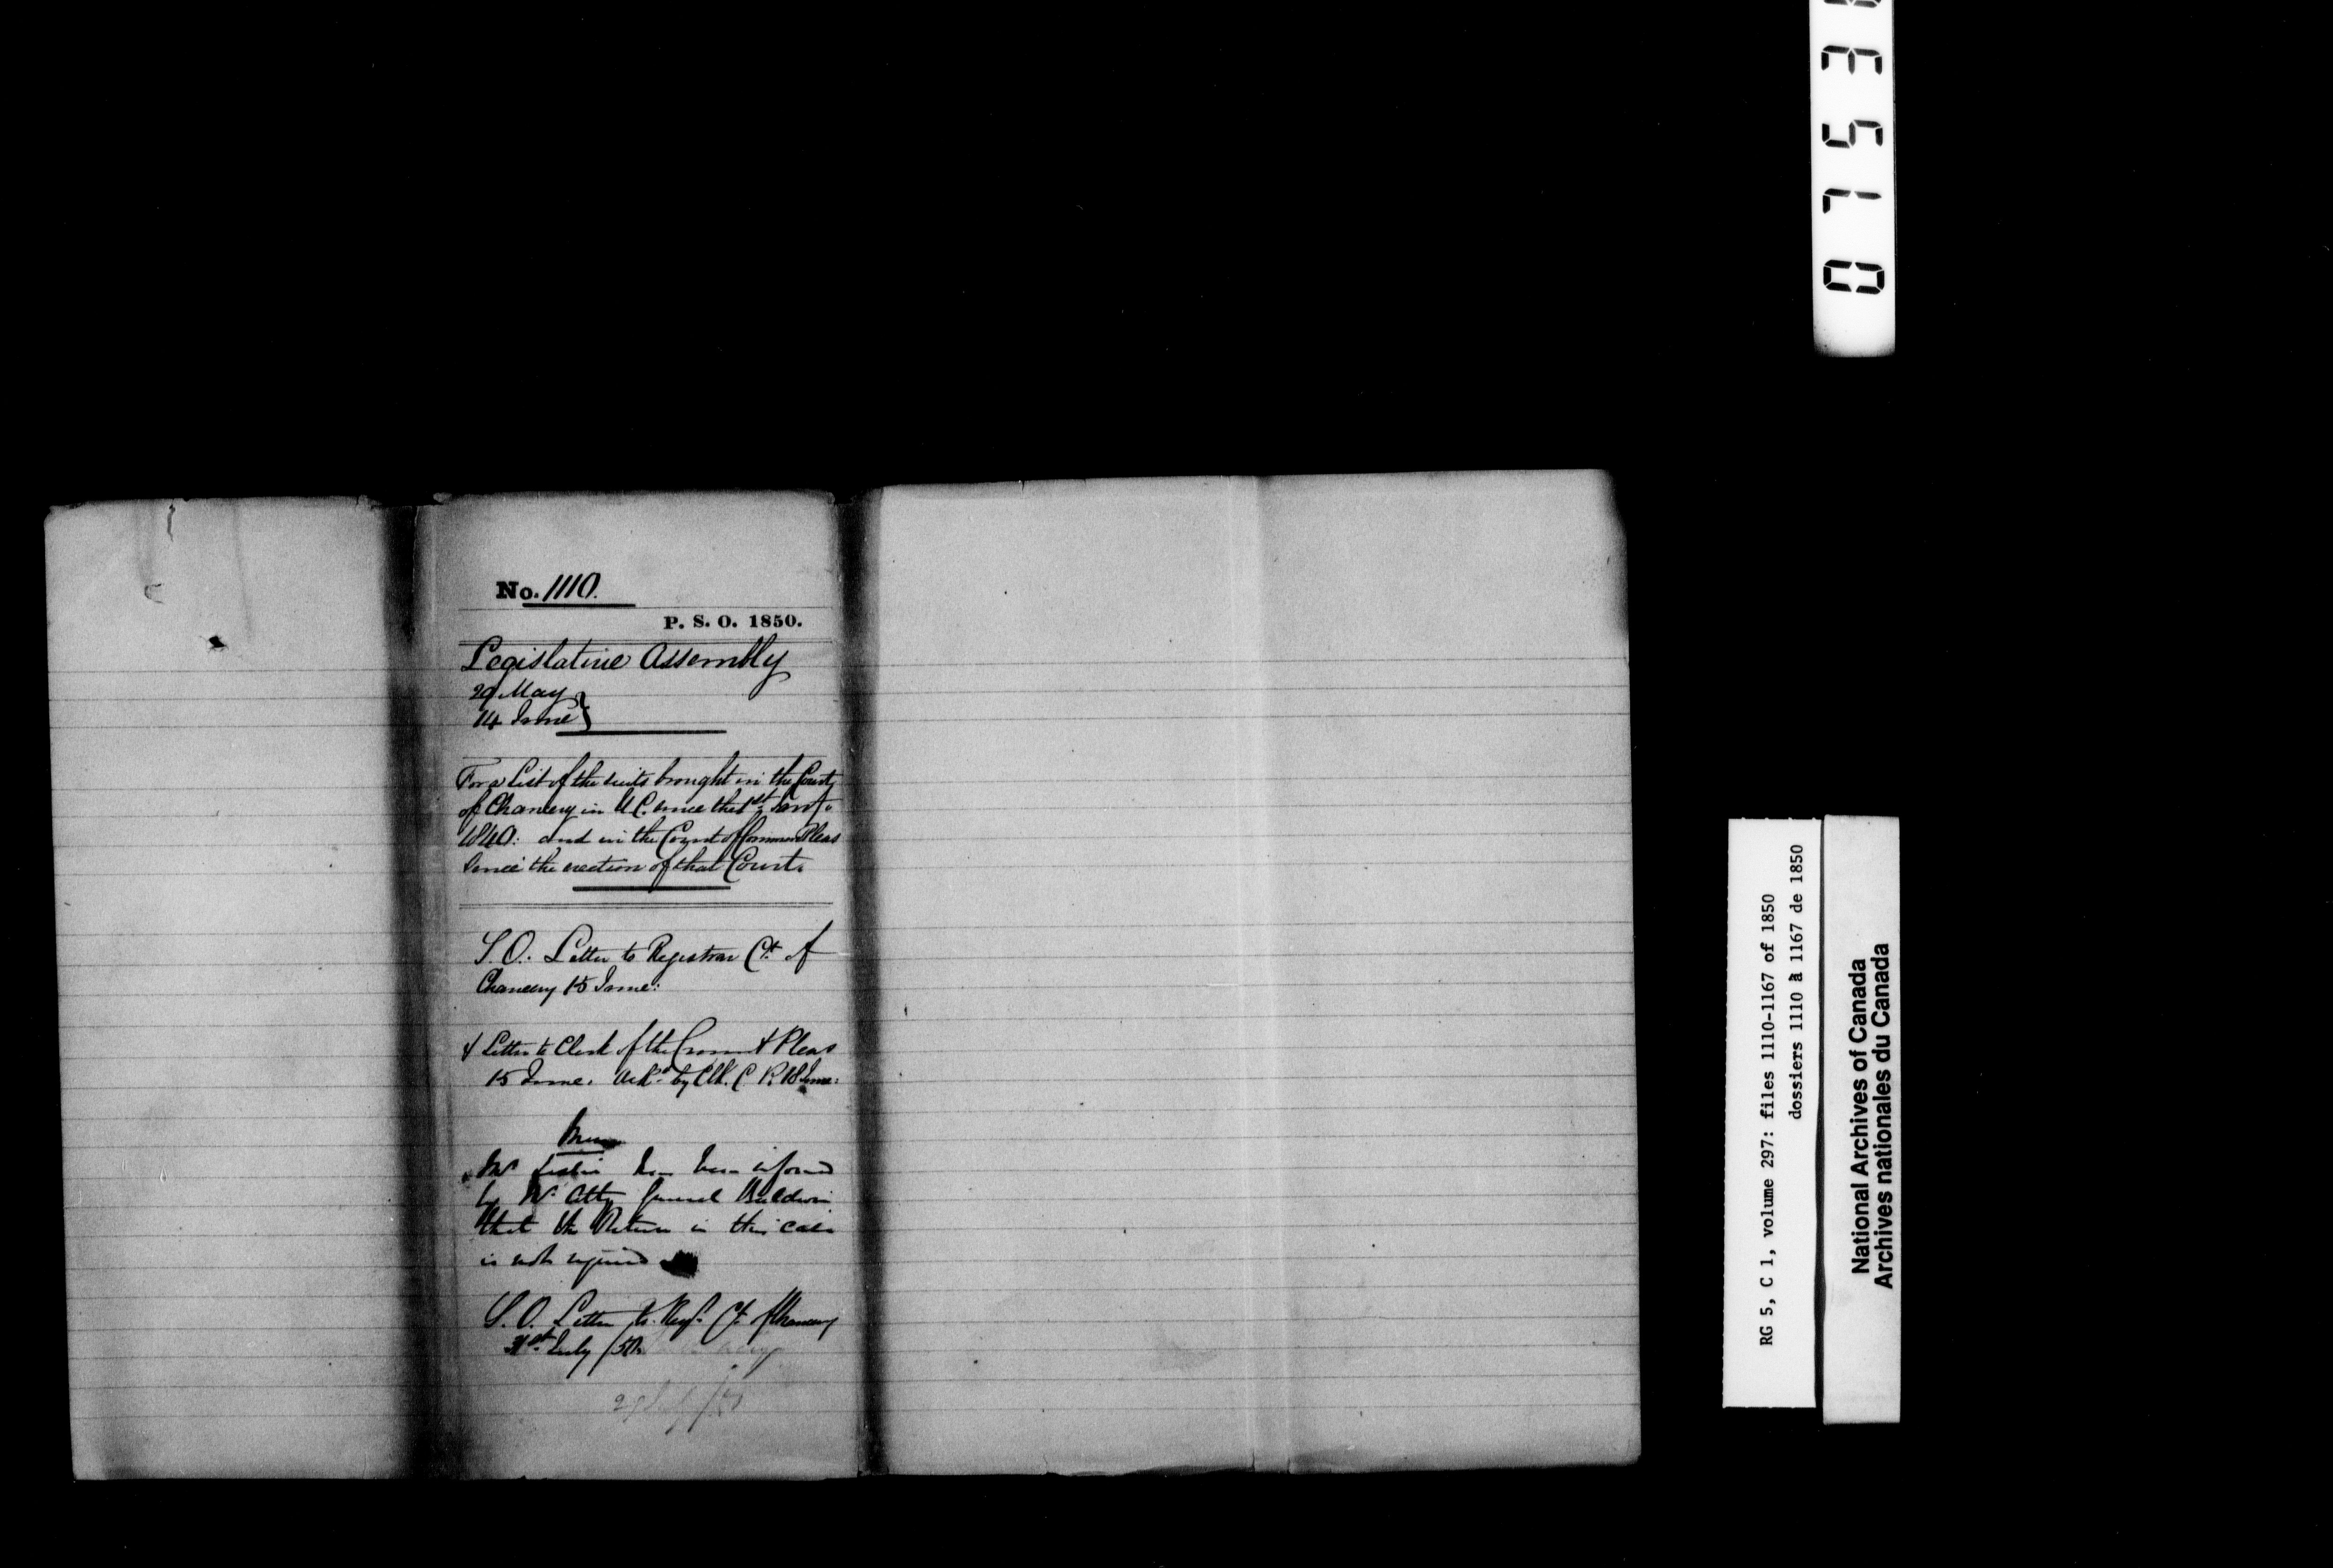 No. 1110.
P. S. O. 1850.
Legislative Assembly
29 May }
14 June }
For a List of the suits brought in the Court
of Chancery in U.C. since the 1st Jany.
1840: and in the Court of Common Pleas
since the erection of that Court.
S. O. Letter to Registrar Ct. of
Chancery 15 June:
& Letter to Clerk of the Crown & Pleas
15 June. Ack'd by Clk. C P. 18 June:
Mem
Mr Leslie has been informed
by Mr Atty General Baldwin
that the Return in this case
is not required
S. O. Letter to Regr. Ct. of Chancery
31st July /50.
RG 5, C 1, volume 297: files 1110-1167 of 1850
dossiers 1110 à 1167 de 1850
National Archives of Canada
Archives nationales du Canada
0753